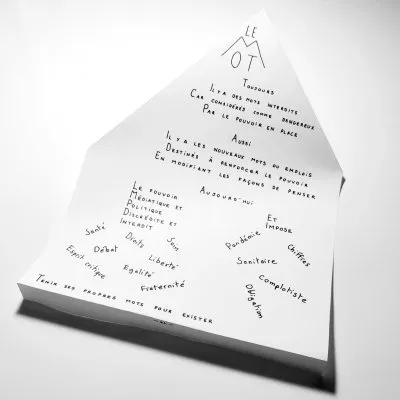 LE
MOT
TOUJOURS
IL Y A DES MOTS INTERDITS
CAR CONSIDÉRÉS COMME DANGEREUX
PAR LE POUVOIR EN PLACE
AUSSI
IL Y A LES NOUVEAUX MOTS OU EMPLOIS
DESTINÉS À RENFORCER LE POUVOIR
EN MODIFIANT LES FAÇONS DE PENSER
AUJOURD'HUI
LE POUVOIR
MÉDIATIQUE ET
POLITIQUE
DISCRÉDITE ET
INTERDIT
Santé
Droits
Soin
Débat
Liberté
Esprit critique
Egalité
Fraternité
ET
IMPOSE
Pandémie
Chiffres
Sanitaire
Complotiste
Obligation
TENIR SES PROPRES MOTS POUR EXISTER